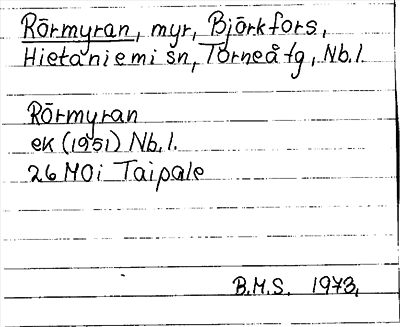 Rörmyran, myr, Björkfors,
Hietaniemi sn, Torneå tg, Nb.l.
Rörmyran
ek (1951) Nb.l.
26 M 0i Taipale
B.M.S. 1973.